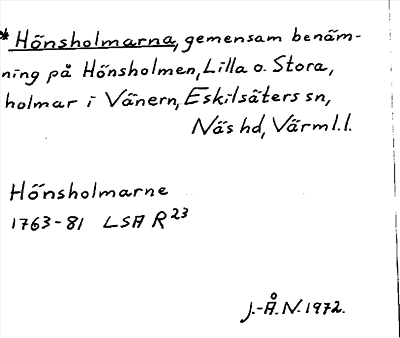 * Hönsholmarna, gemensam benäm-
ning på Hönsholmen, Lilla o. Stora,
holmar i Vänern, Eskilsäters sn,
Näs hd, Värml.l.
Hönsholmarne
1763-81 LSA R23
J.-Å.N. 1972.